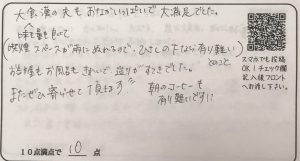 大食漢の夫もおなかいっぱいで大満足でした。
味も量も良くて
(喫煙スペースが雨にぬれるので、ひさしの下なら有り難い
とのこと)
お部屋もお風呂もきれいで、造りがすてきでした。
またぜひ寄らせて頂きます
朝のコーヒーも
有り難いです!!
スマホでも投稿
OK!チェック欄
記入後フロント
へお渡し下さい。
10点満点で 10 点